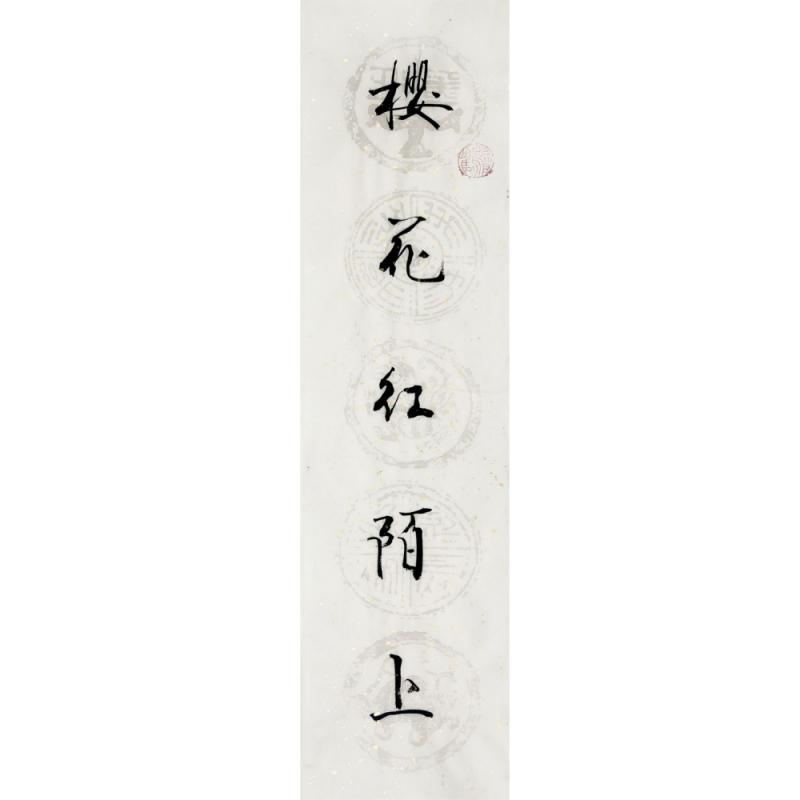 櫻花红陌上